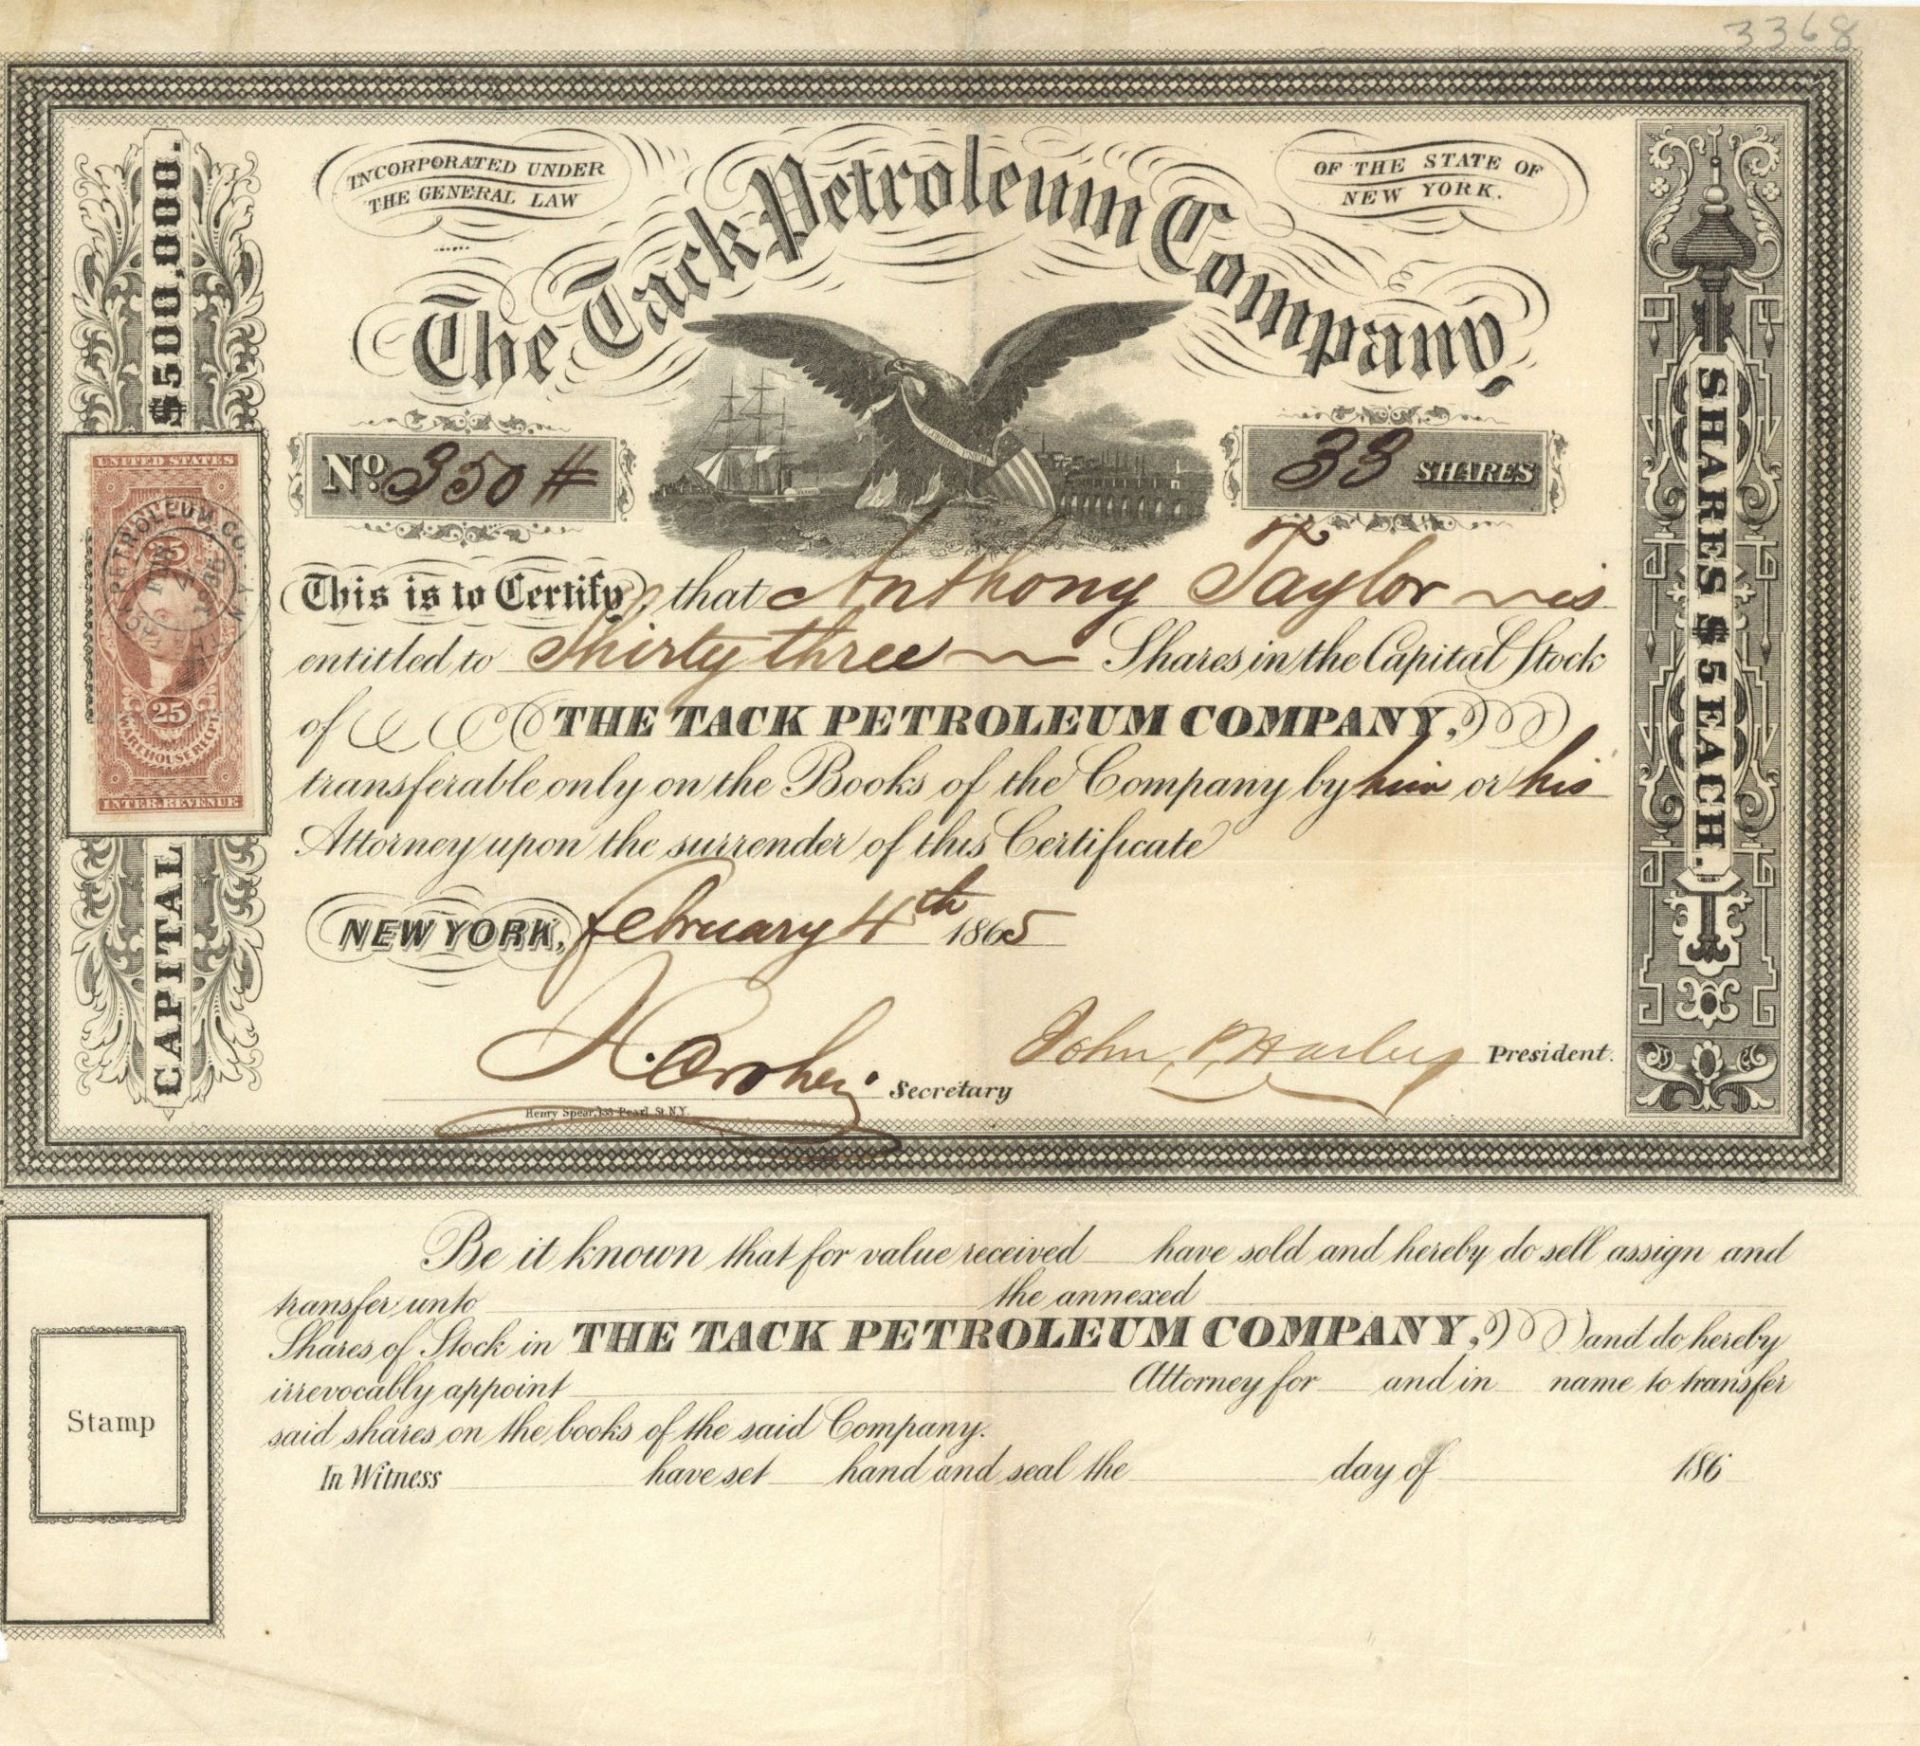 3368
INCORPORATED UNDER
THE GENERAL LAW
OF THE STATE OF
NEW YORK.
The Tack Petroleum Company,
No. 350 #
33 SHARES
CAPITAL $500,000.
SHARES $5 EACH.
UNITED STATES
TACK PETROLEUM CO. N.Y.
25
25
WAREHOUSE RECPT
INTER. REVENUE
This is to Certify, that Anthony Taylor is
entitled to Thirty three Shares in the Capital Stock
of THE TACK PETROLEUM COMPANY,
transferable only on the Books of the Company by him or his
Attorney upon the surrender of this Certificate
NEW YORK, February 4th 1865
Secretary
John P. President.
Henry Spear, 135 Pearl St. N.Y.
Be it known that for value received have sold and hereby do sell assign and
transfer unto the annexed
Shares of Stock in THE TACK PETROLEUM COMPANY, and do hereby
irrevocably appoint Attorney for and in name to transfer
said shares on the books of the said Company.
In Witness have set hand and seal the day of 186
Stamp